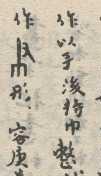 作以手後持巾整
作形容庚